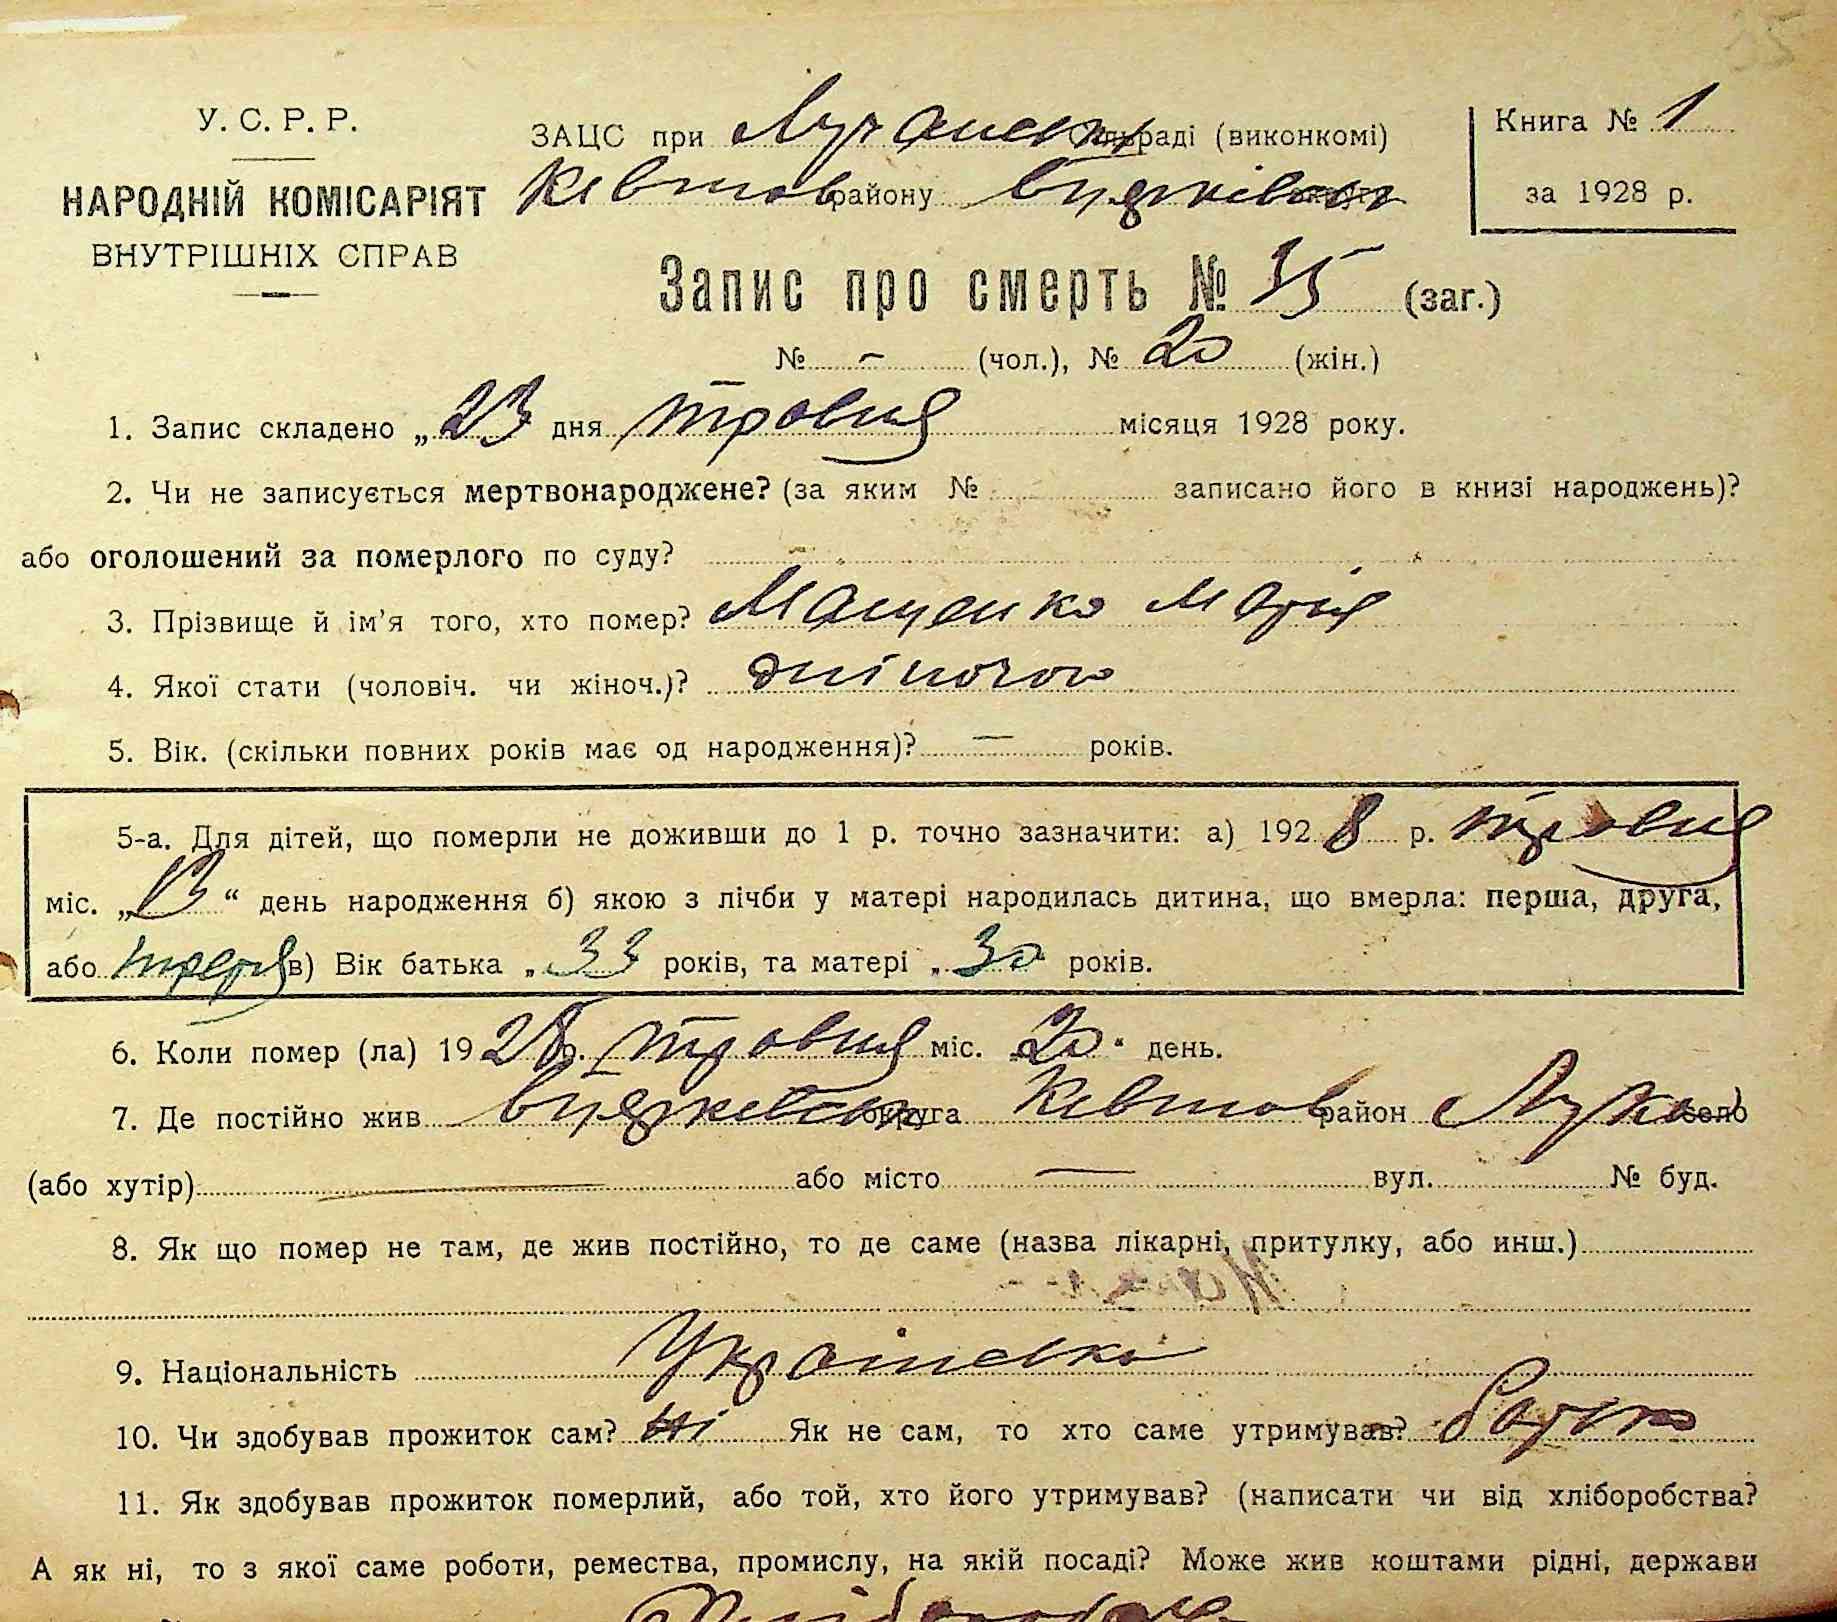 У. С. Р. Р.
НАРОДНІЙ КОМІСАРІЯТ
ВНУТРІШНІХ СПРАВ
ЗАЦС при Лучанськ Сільраді (виконкомі)
району
Книга № 1
за 1928 р.
Запис про смерть № 35 (заг.)
№ - (чол.), № 20 (жін.)
1. Запис складено „23 дня травня місяця 1928 року.
2. Чи не записується мертвонароджене? (за яким № записано його в книзі народжень)?
або оголошений за померлого по суду?
3. Прізвище й ім'я того, хто помер? Мащенко Марія
4. Якої стати (чоловіч. чи жіноч.)? жіночою
5. Вік. (скільки повних років має од народження)? — років.
5-а. Для дітей, що померли не доживши до 1 р. точно зазначити: а) 1928 р. травня
міс. „13“ день народження б) якою з лічби у матері народилась дитина, що вмерла: перша, друга,
або третя в) Вік батька „33 років, та матері „30 років.
6. Коли помер (ла) 1928 р. травня міс. „20“ день.
7. Де постійно жив округа район Лука село
(або хутір) — або місто — вул. № буд.
8. Як що помер не там, де жив постійно, то де саме (назва лікарні, притулку, або инш.)
9. Національність Українська
10. Чи здобував прожиток сам? Ні Як не сам, то хто саме утримував? батько
11. Як здобував прожиток померлий, або той, хто його утримував? (написати чи від хліборобства?
А як ні, то з якої саме роботи, ремества, промислу, на якій посаді? Може жив коштами рідні, держави